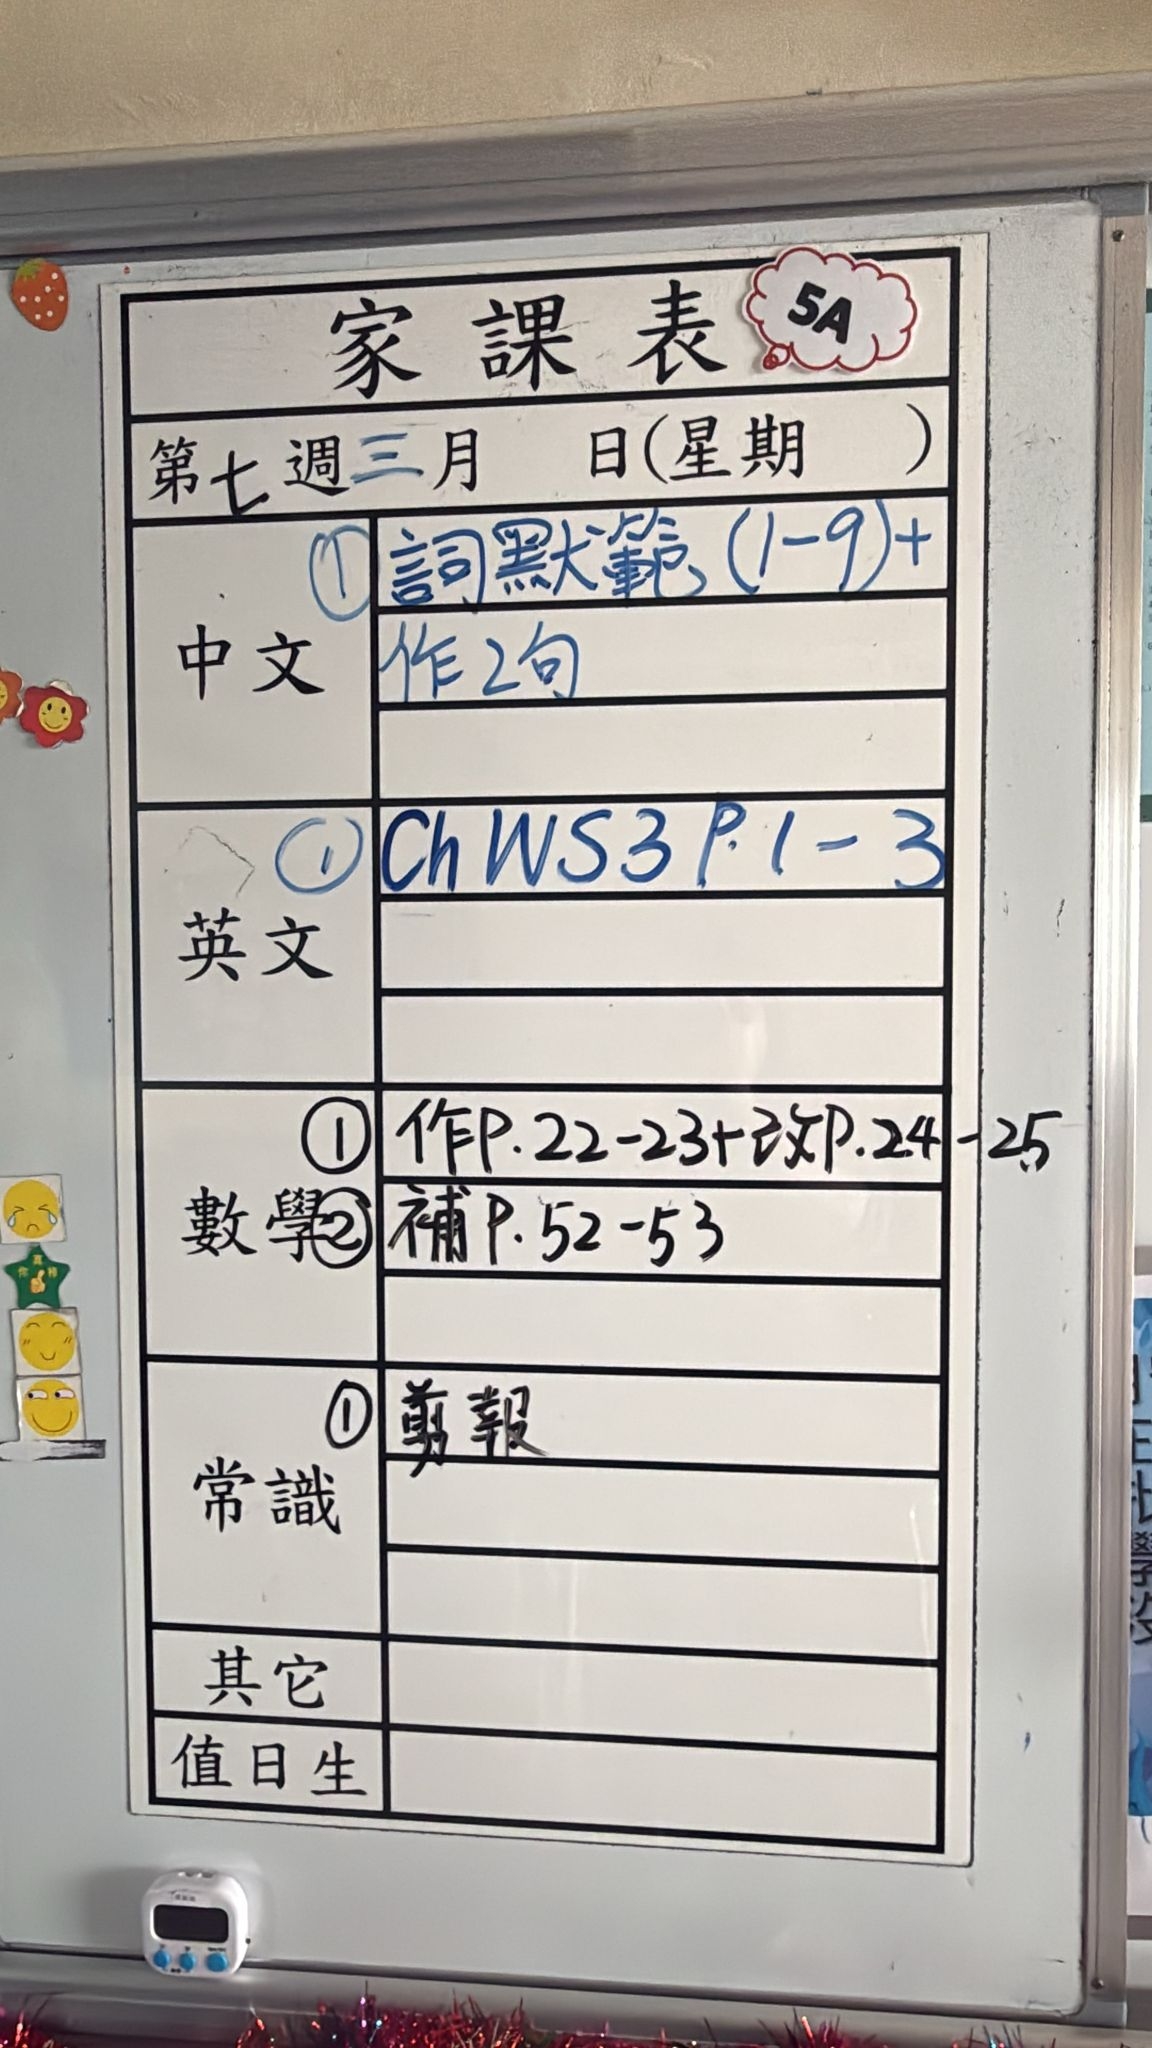 家課表 5A
第七週三月 日(星期 )
中文
① 詞默範(1-9)+
作2句
英文
① Ch WS3 P.1-3
數學
① 作P.22-23+改P.24-25
② 補P.52-53
常識
① 剪報
其它
值日生